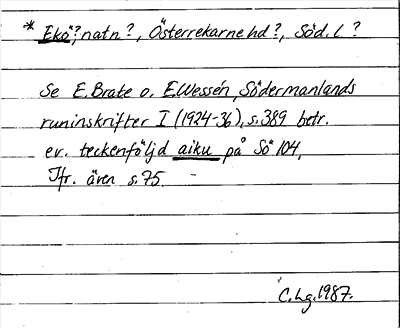 * Ekö?, natn?, Österrekarne hd?, Söd. l.?
Se E. Brate o. E Wessén, Södermanlands
runinskrifter I (1924-36), s. 389 betr.
ev. teckenföljd aiku på Sö 104,
Jfr. även s. 75.
C. Lg. 1987.